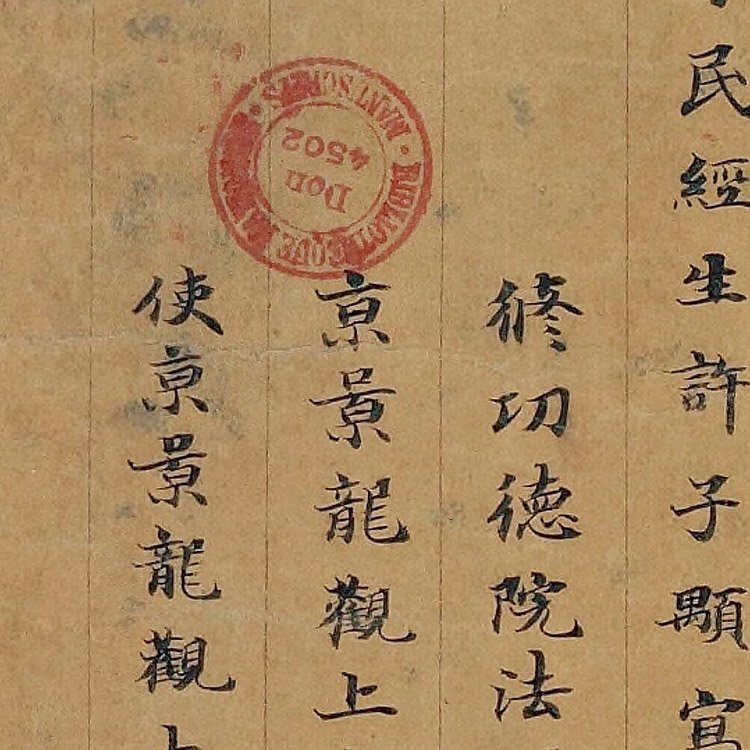 民經生許子顒寫
修㓛德院法
京景龍觀上
使京景龍觀上
BIBLIOT
MANUSCRITS
Don
4502